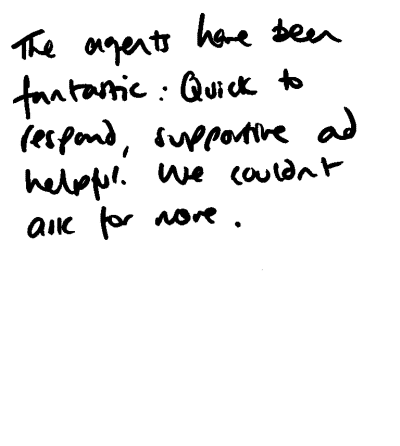 The agents have been
fantastic: Quick to
respond, supportive ad
helpful. We couldn't
ask for more.